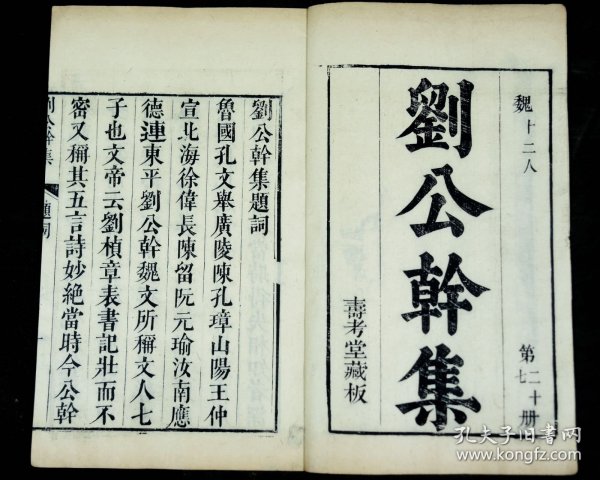 魏十二人
第二十册
七
劉公幹集
壽考堂藏板
劉公幹集題詞
魯國孔文舉廣陵陳孔璋山陽王仲
宣北海徐偉長陳留阮元瑜汝南應
德連東平劉公幹魏文所稱文人七
子也文帝云劉楨章表書記壯而不
密又稱其五言詩妙絕當時今公幹
劉公幹集 題詞
孔夫子旧书网
www.kongfz.com